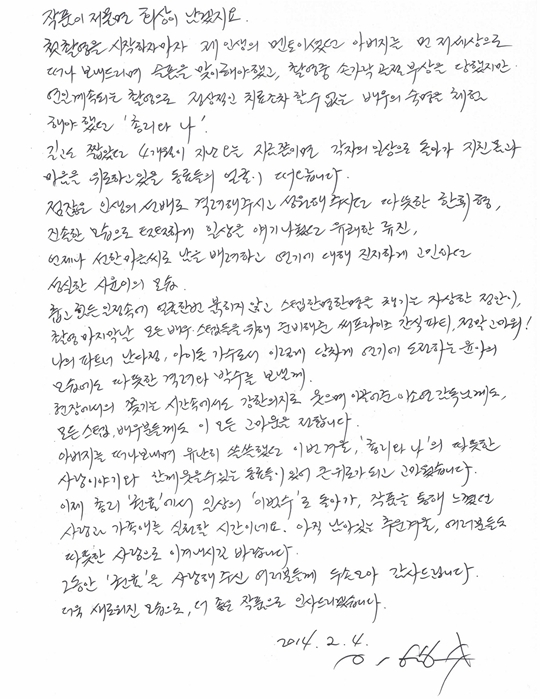 작품이 저물면 회상이 남겠지요.
첫 촬영을 시작하자마자 제 인생의 멘토이셨던 아버지를 먼저 세상으로
떠나 보내드리며 슬픔을 맞이해야했고, 촬영중 손가락 관절 부상을 당했지만
연일 계속되는 촬영으로 정상적인 치료조차 할 수 없는 배우의 숙명을 체험
해야 했던 '총리와 나'.
길고도 짧았던 4개월이 지난 오늘 지금쯤이면 각자의 일상으로 돌아가 지친 몸과
마음을 위로하고 있을 동료들의 얼굴이 떠오릅니다.
점잖은 인생의 선배로 격려해주시고 응원해주시던 따뜻한 한희 형,
진솔한 모습으로 도란도란하게 일상을 얘기 나눴던 유쾌한 류진,
언제나 선한 마음씨로 남을 배려하고 연기에 대해 진지하게 고민하던
성실한 시윤이의 모습.
춥고 힘든 일정속에 얼굴 한번 붉히지 않고 스텝 한명 한명을 챙기는 자상한 정안이,
촬영 마지막날 모든 배우, 스텝들을 위해 준비해준 써프라이즈 간식파티, 정말 고마워!
나의 파트너 남다정, 아이돌 가수로서 이렇게 당차게 연기에 도전하는 윤아의
모습에도 따뜻한 격려와 박수를 보낼게.
현장에서의 쫓기는 시간속에서도 강한의지로 웃으며 이끌어준 이소연 감독님께도,
모든 스텝, 배우분들께도 이 모든 고마움을 전합니다.
아버지를 떠나보내며 유난히 쓸쓸했던 이번 겨울, '총리와 나'의 따뜻한
사랑이야기와 함께 웃을 수 있는 동료들이 있어 큰 위로가 되고 고마웠습니다.
이제 총리 '권율'에서 일상의 '이범수'로 돌아가, 작품을 통해 느꼈던
사랑과 가족애를 실천할 시간이네요. 아직 남아있는 추운겨울, 여러분들도
따뜻한 사랑으로 이겨내시길 바랍니다.
그동안 '권율'을 사랑해 주신 여러분들께 두손모아 감사드립니다.
더욱 새로워진 모습으로, 더 좋은 작품으로 인사드리겠습니다.
2014. 2. 4.